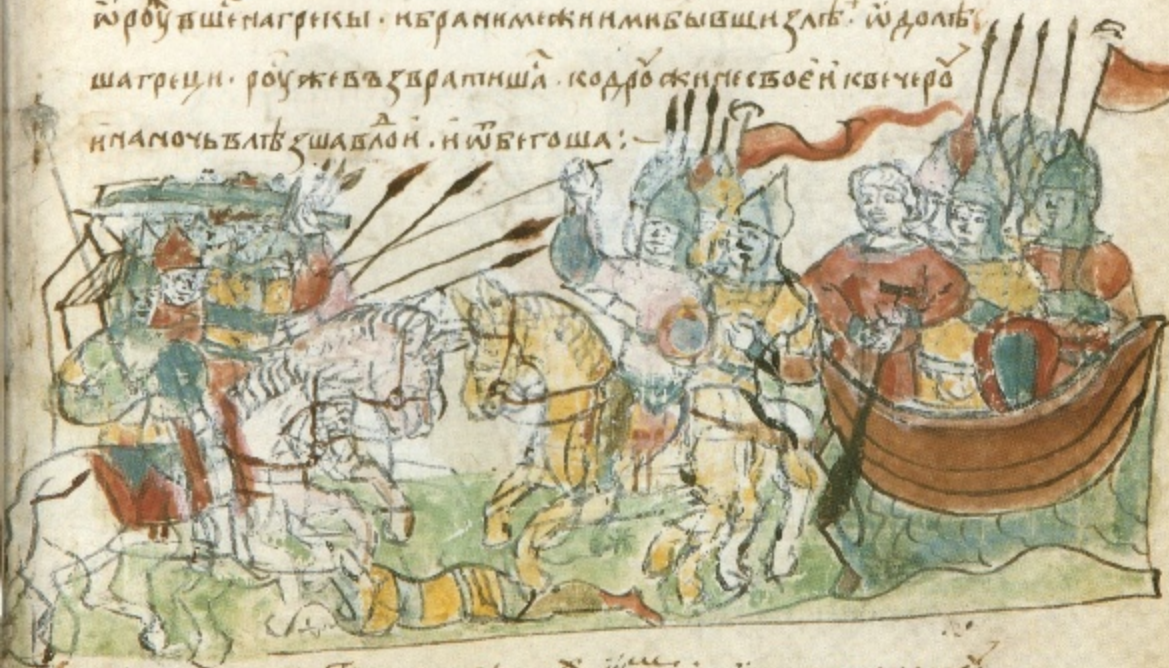 ѿроꙋвше на грекы · и брани межи ими бывши злѣ · ѿдолѣ
ша греци · роу же възвратишѧ · ко дроꙋжине своей к вечероꙋ
и на ночь вълѣзша в лоⷣи · и ѿбегоша :